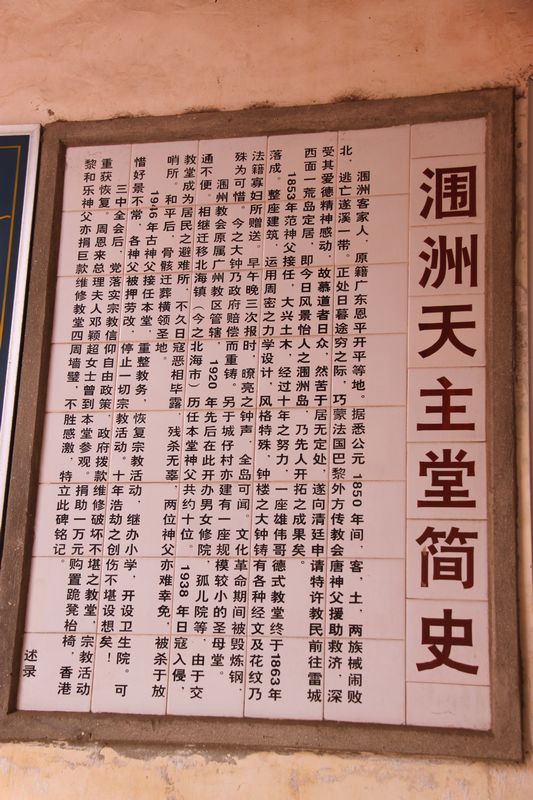 涠洲天主堂简史
涠洲客家人，原籍广东恩平开平等地。据悉公元1850年间，客，土，两族械闹败
北，逃亡遂溪一带。正处日暮途穷之际，巧蒙法国巴黎外方传教会唐神父援助救济，深
受其爱德精神感动，故慕道者日众，然苦于居无定处，遂向清廷申请特许教民前往雷城
西面一荒岛定居，即今日风景怡人之涠洲岛，乃先人开拓之成果矣。
1853年范神父接任，大兴土木，经过十年之努力，一座雄伟哥德式教堂终于1863年
落成。整座建筑，运用周密之力学设计，风格特殊，钟楼之大钟铸有各种经文及花纹乃
法籍寡妇所赠送。早午晚三次报时，嘹亮之钟声，全岛可闻。文化革命期间被毁炼钢，
殊为可惜。今之大钟乃政府赔偿而重铸。另于城仔村亦建有一座规模较小的圣母堂。
涠洲教会原属广州教区管辖，1920年先后在此开办男女修院，孤儿院等，由于交
通不便。相继迁移北海镇（今之北海市）历任本堂神父共约十位。1938年日寇入侵，
教堂成为居民之避难所，不久日寇恶相毕露，残杀无辜，两位神父亦难幸免，被杀于放
哨所。和平后，骨骸迁葬横领圣地。
1946年古神父接任本堂，重整教务，恢复宗教活动，继办小学，开设卫生院。可
惜好景不常，各神父被押劳改，停止一切宗教活动。十年浩劫之创伤不堪设想矣！
三中全会后，党落实宗教信仰自由政策，政府拨款维修破坏不堪之教堂，宗教活动
重获恢复。周恩来总理夫人邓颖超女士曾到本堂参观。捐助一万元购置跪凳枱椅，香港
黎和乐神父亦捐巨款维修教堂四周墙壁，不胜感激，特立此碑铭记。
述录